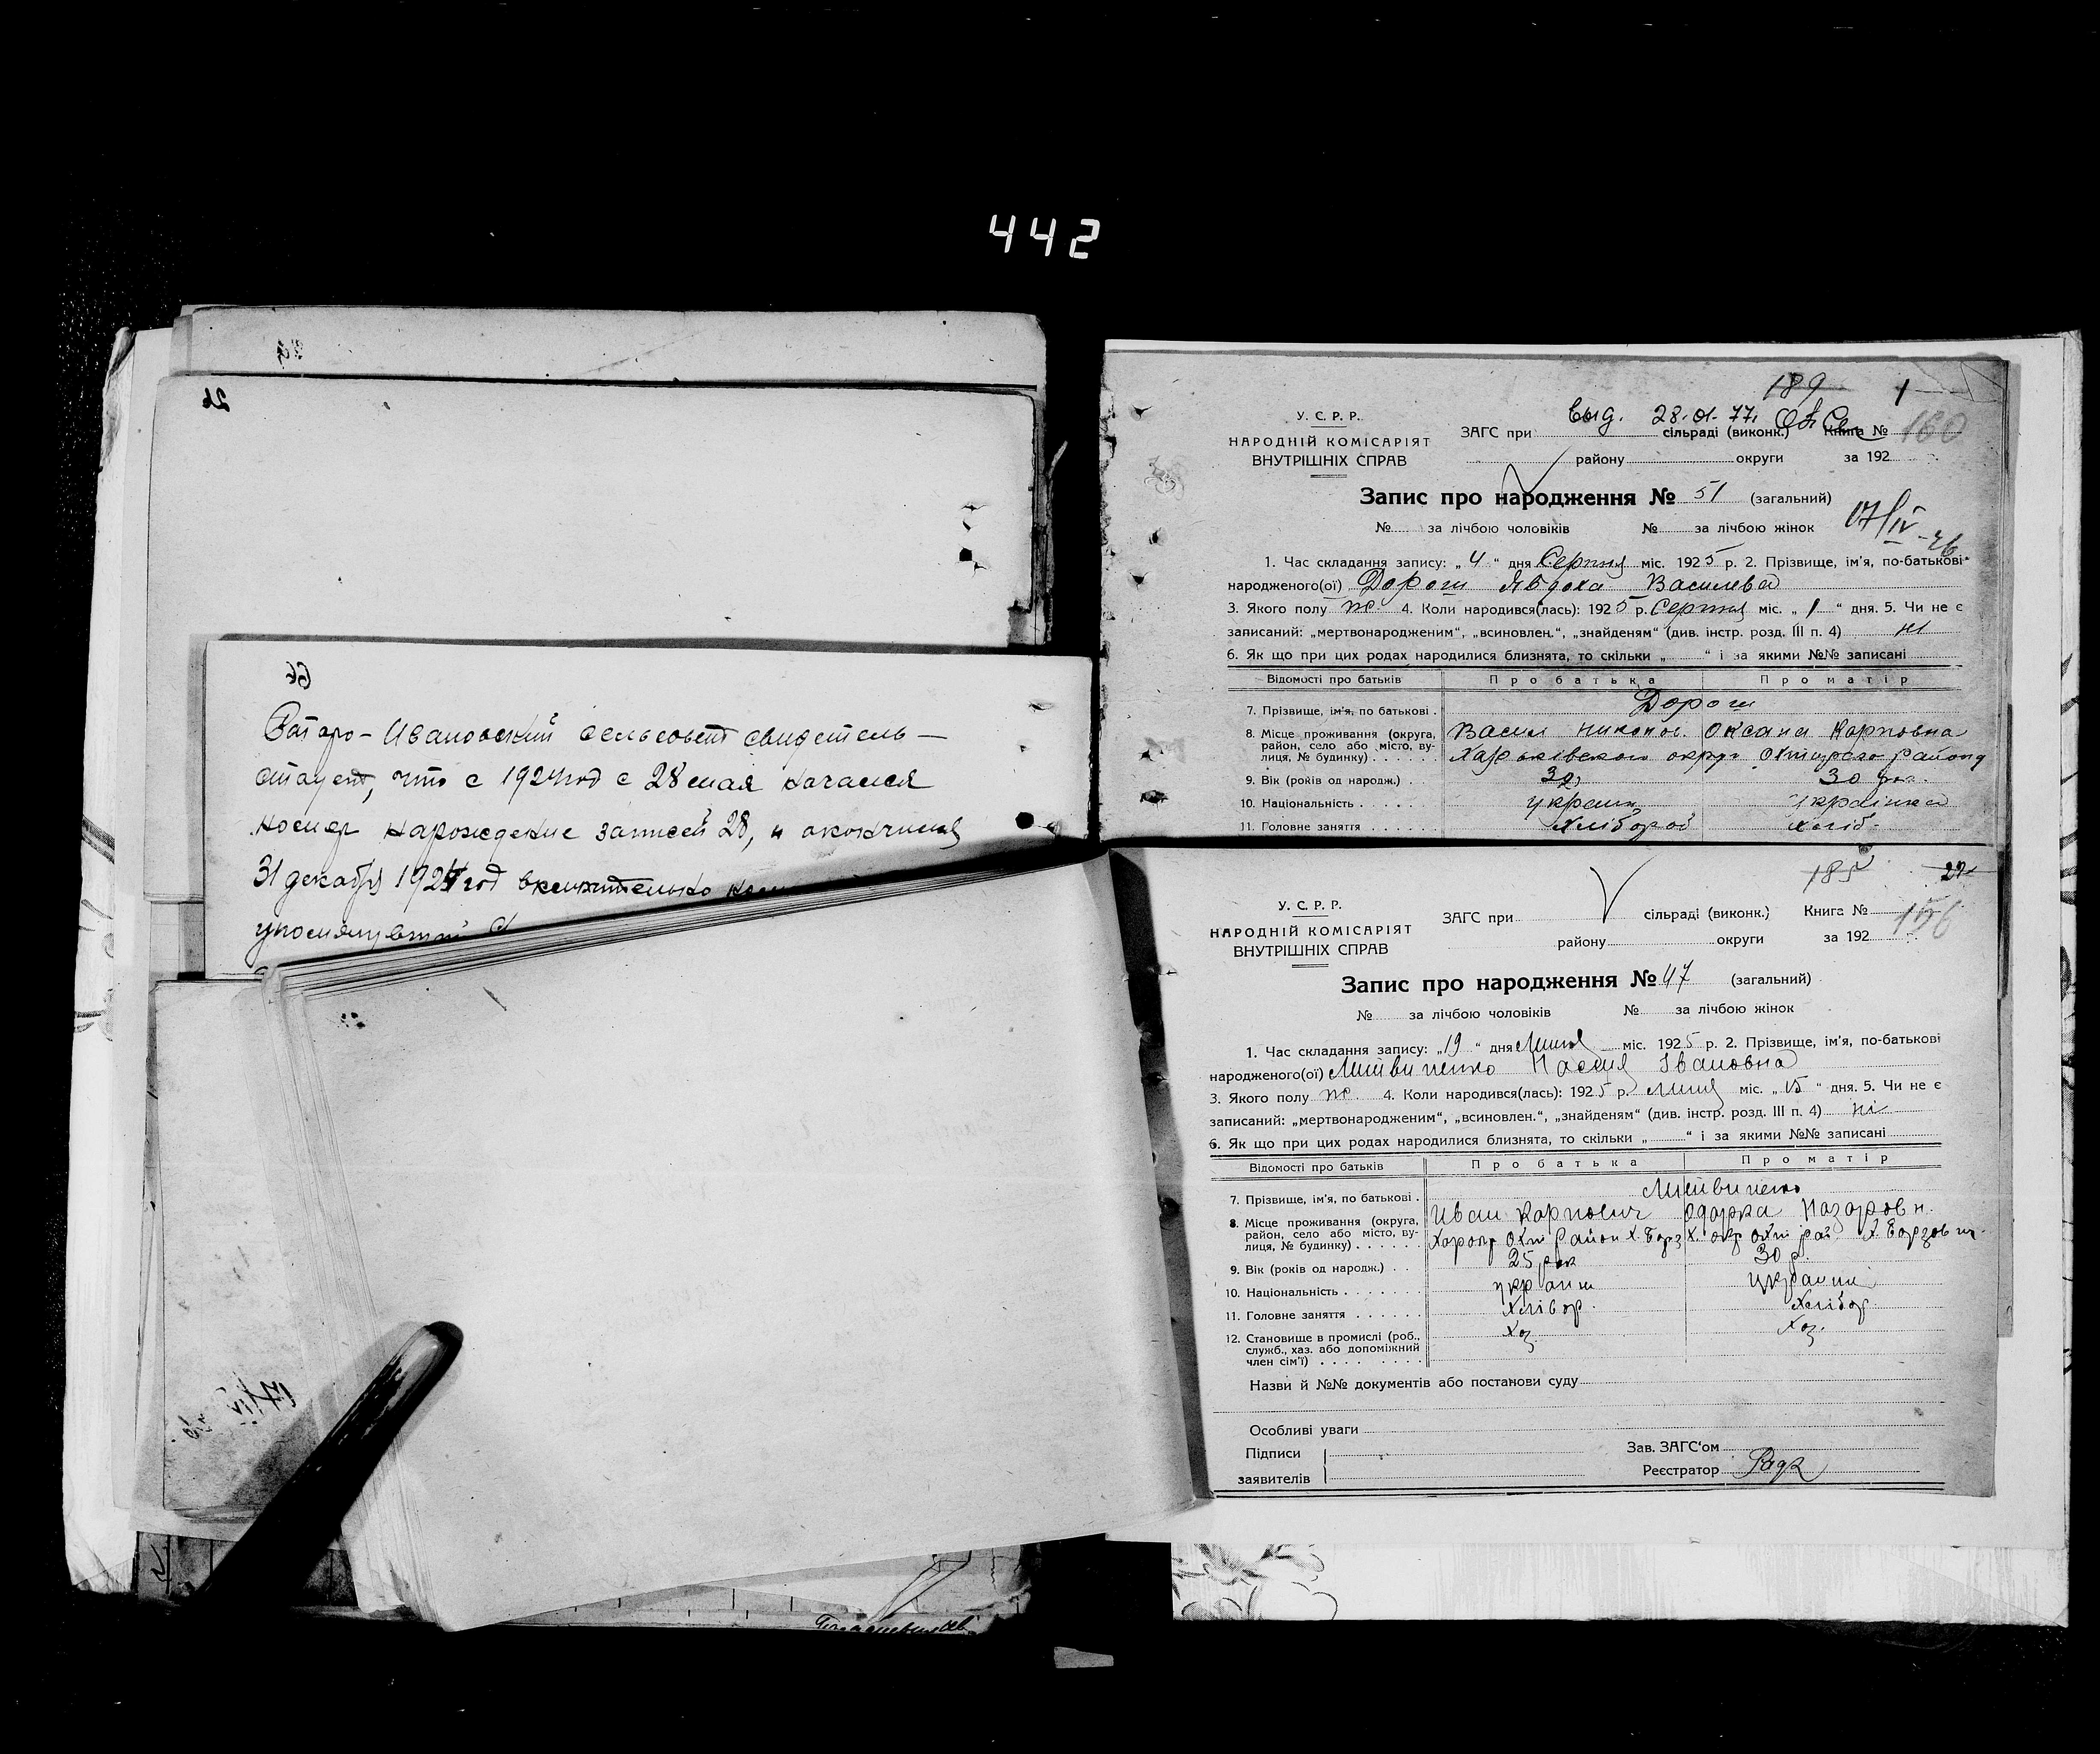 442
26
66
Ратаро-Ивановский сельсовет свидетель-
ствует, что с 1924 год с 28 мая начался
номер нарождение записей 28, и окончился
31 декабря 1924 год включительно
упомянутый
189 1
выд. 28.01.77.
У. С. Р. Р.
НАРОДНІЙ КОМІСАРІЯТ
ВНУТРІШНІХ СПРАВ
ЗАГС при сільраді (виконк.) Книга № 160
району округи за 192
Запис про народження № 51 (загальний)
№ за лічбою чоловіків № за лічбою жінок
17/IV-76
1. Час складання запису: „4“ дня Серпня міс. 1925 р. 2. Прізвище, ім'я, по-батькові
народженого(ої) Дорош Явдоха Василева
3. Якого полу ж. 4. Коли народився(лась): 1925 р. Серпня міс. „1“ дня. 5. Чи не є
записаний: „мертвонародженим“, „всиновлен.“, „знайденям“ (див. інстр. розд. III п. 4) ні
6. Як що при цих родах народилися близнята, то скільки „ “ і за якими №№ записані
Відомості про батьків Про батька Про матір
Дорош
7. Прізвище, ім'я, по батькові . Васил Никонов. Оксана Карповна
8. Місце проживання (округа, район, село або місто, ву-
лиця, № будинку) . . . . . . Харьківского округ Охтирсго району
9. Вік (років од народж.) . . 30 30 рок.
10. Національність . . . . . україн українка
11. Головне заняття . . . . . . Хлібороб Хліб-
185 22
У. С. Р. Р.
НАРОДНІЙ КОМІСАРІЯТ
ВНУТРІШНІХ СПРАВ
ЗАГС при сільраді (виконк.) Книга № 156
району округи за 192
Запис про народження № 47 (загальний)
№ за лічбою чоловіків № за лічбою жінок
1. Час складання запису: „19“ дня Липня міс. 1925 р. 2. Прізвище, ім'я, по-батькові
народженого(ої) Литвиненко Настя Івановна
3. Якого полу ж. 4. Коли народився(лась): 1925 р. липня міс. „15“ дня. 5. Чи не є
записаний: „мертвонародженим“, „всиновлен.“, „знайденям“ (див. інстр. розд. III п. 4) ні
6. Як що при цих родах народилися близнята, то скільки „ “ і за якими №№ записані
Відомості про батьків Про батька Про матір
7. Прізвище, ім'я, по батькові .
Иван Карпович Одарка Назаровн.
8. Місце проживання (округа,
район, село або місто, ву-
лиця, № будинку) . . . . . .
9. Вік (років од народж.) . . 25 рок 30 р.
10. Національність . . . . . . .
11. Головне заняття . . . . . . Хлібор. Хлібор.
12. Становище в промислі (роб., Хоз. Хоз.
служб., хаз. або допоміжний
член сім'ї) . . . . . . . .
Назви й №№ документів або постанови суду
Особливі уваги
Підписи Зав. ЗАГС'ом
заявителів Реєстратор
17/IV